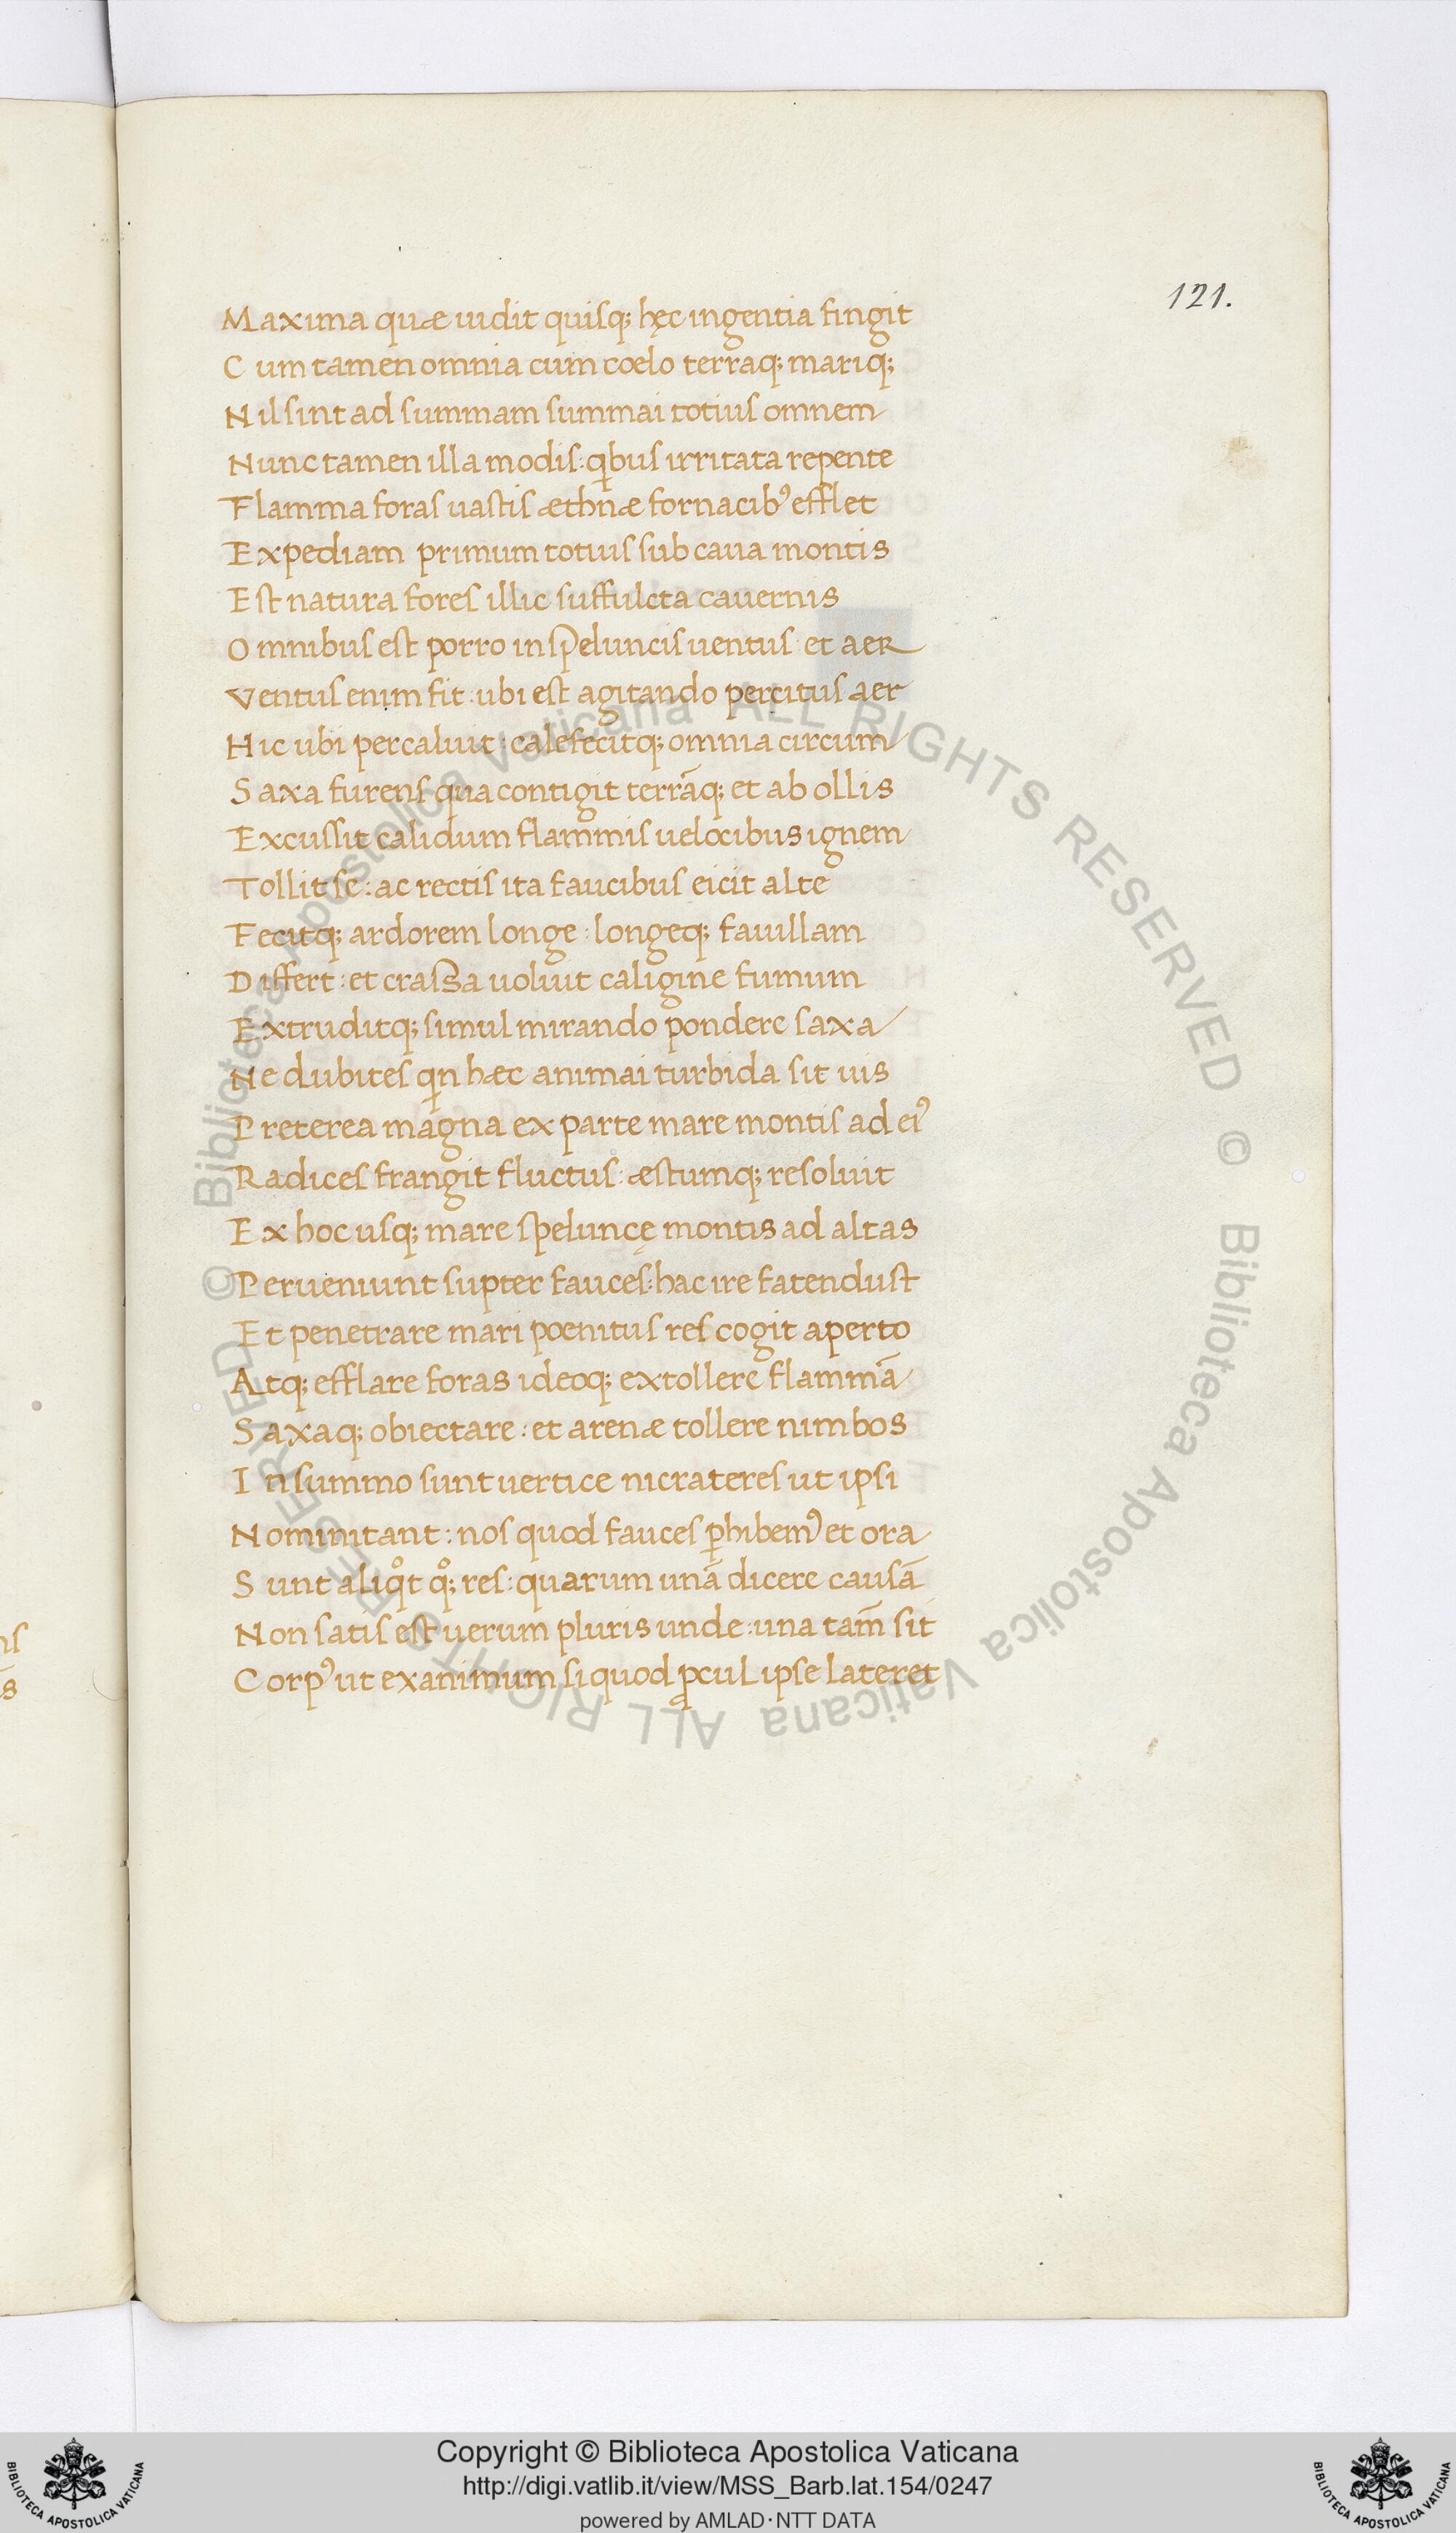 121.
Maxima quæ uidit quisq; hęc ingentia fingit
Cum tamen omnia cum coelo terraq; mariq;
Nil sint ad summam summai totius omnem
Nunc tamen illa modis: qͥbus irritata repente
Flamma foras uastis æthnæ fornacibꝰ efflet
Expediam primum totius sub caua montis
Est natura fores illic suffulcta cauernis
Omnibus est porro in speluncis uentus: et aer
Ventus enim fit: ubi est agitando percitus aer
Hic ubi percaluit: calefecitq; omnia circum
Saxa furens qua contigit terrāq; et ab ollis
Excussit calidum flammis uelocibus ignem
Tollit se: ac rectis ita faucibus eicit alte
Fecitq; ardorem longe: longeq; fauillam
Differt: et crassa uoluit caligine fumum
Extruditq; simul mirando pondere saxa
Ne dubites qͥn hæc animai turbida sit uis
Preterea magna ex parte mare montis ad eiꝰ
Radices frangit fluctus: æstumq; resoluit
Ex hoc usq; mare speluncę montis ad altas
Perueniunt supter fauces: hac ire fatendust
Et penetrare mari poenitus res cogit aperto
Atq; efflare foras ideoq; extollere flammā
Saxaq; obiectare: et arenæ tollere nimbos
In summo sunt uertice nicrateres ut ipsi
Nominitant: nos quod fauces ꝑhibemꝰ et ora
Sunt aliqͦt qͦ; res: quarum unā dicere causā
Non satis est uerum pluris unde: una tam̄ sit
Corpꝰ ut exanimum siquod ꝓcul ipse lateret
© Biblioteca Apostolica Vaticana ALL RIGHTS RESERVED © Biblioteca Apostolica Vaticana ALL RIGHTS RESERVED
Copyright © Biblioteca Apostolica Vaticana
http://digi.vatlib.it/view/MSS_Barb.lat.154/0247
powered by AMLAD·NTT DATA
BIBLIOTECA APOSTOLICA VATICANA
BIBLIOTECA APOSTOLICA VATICANA